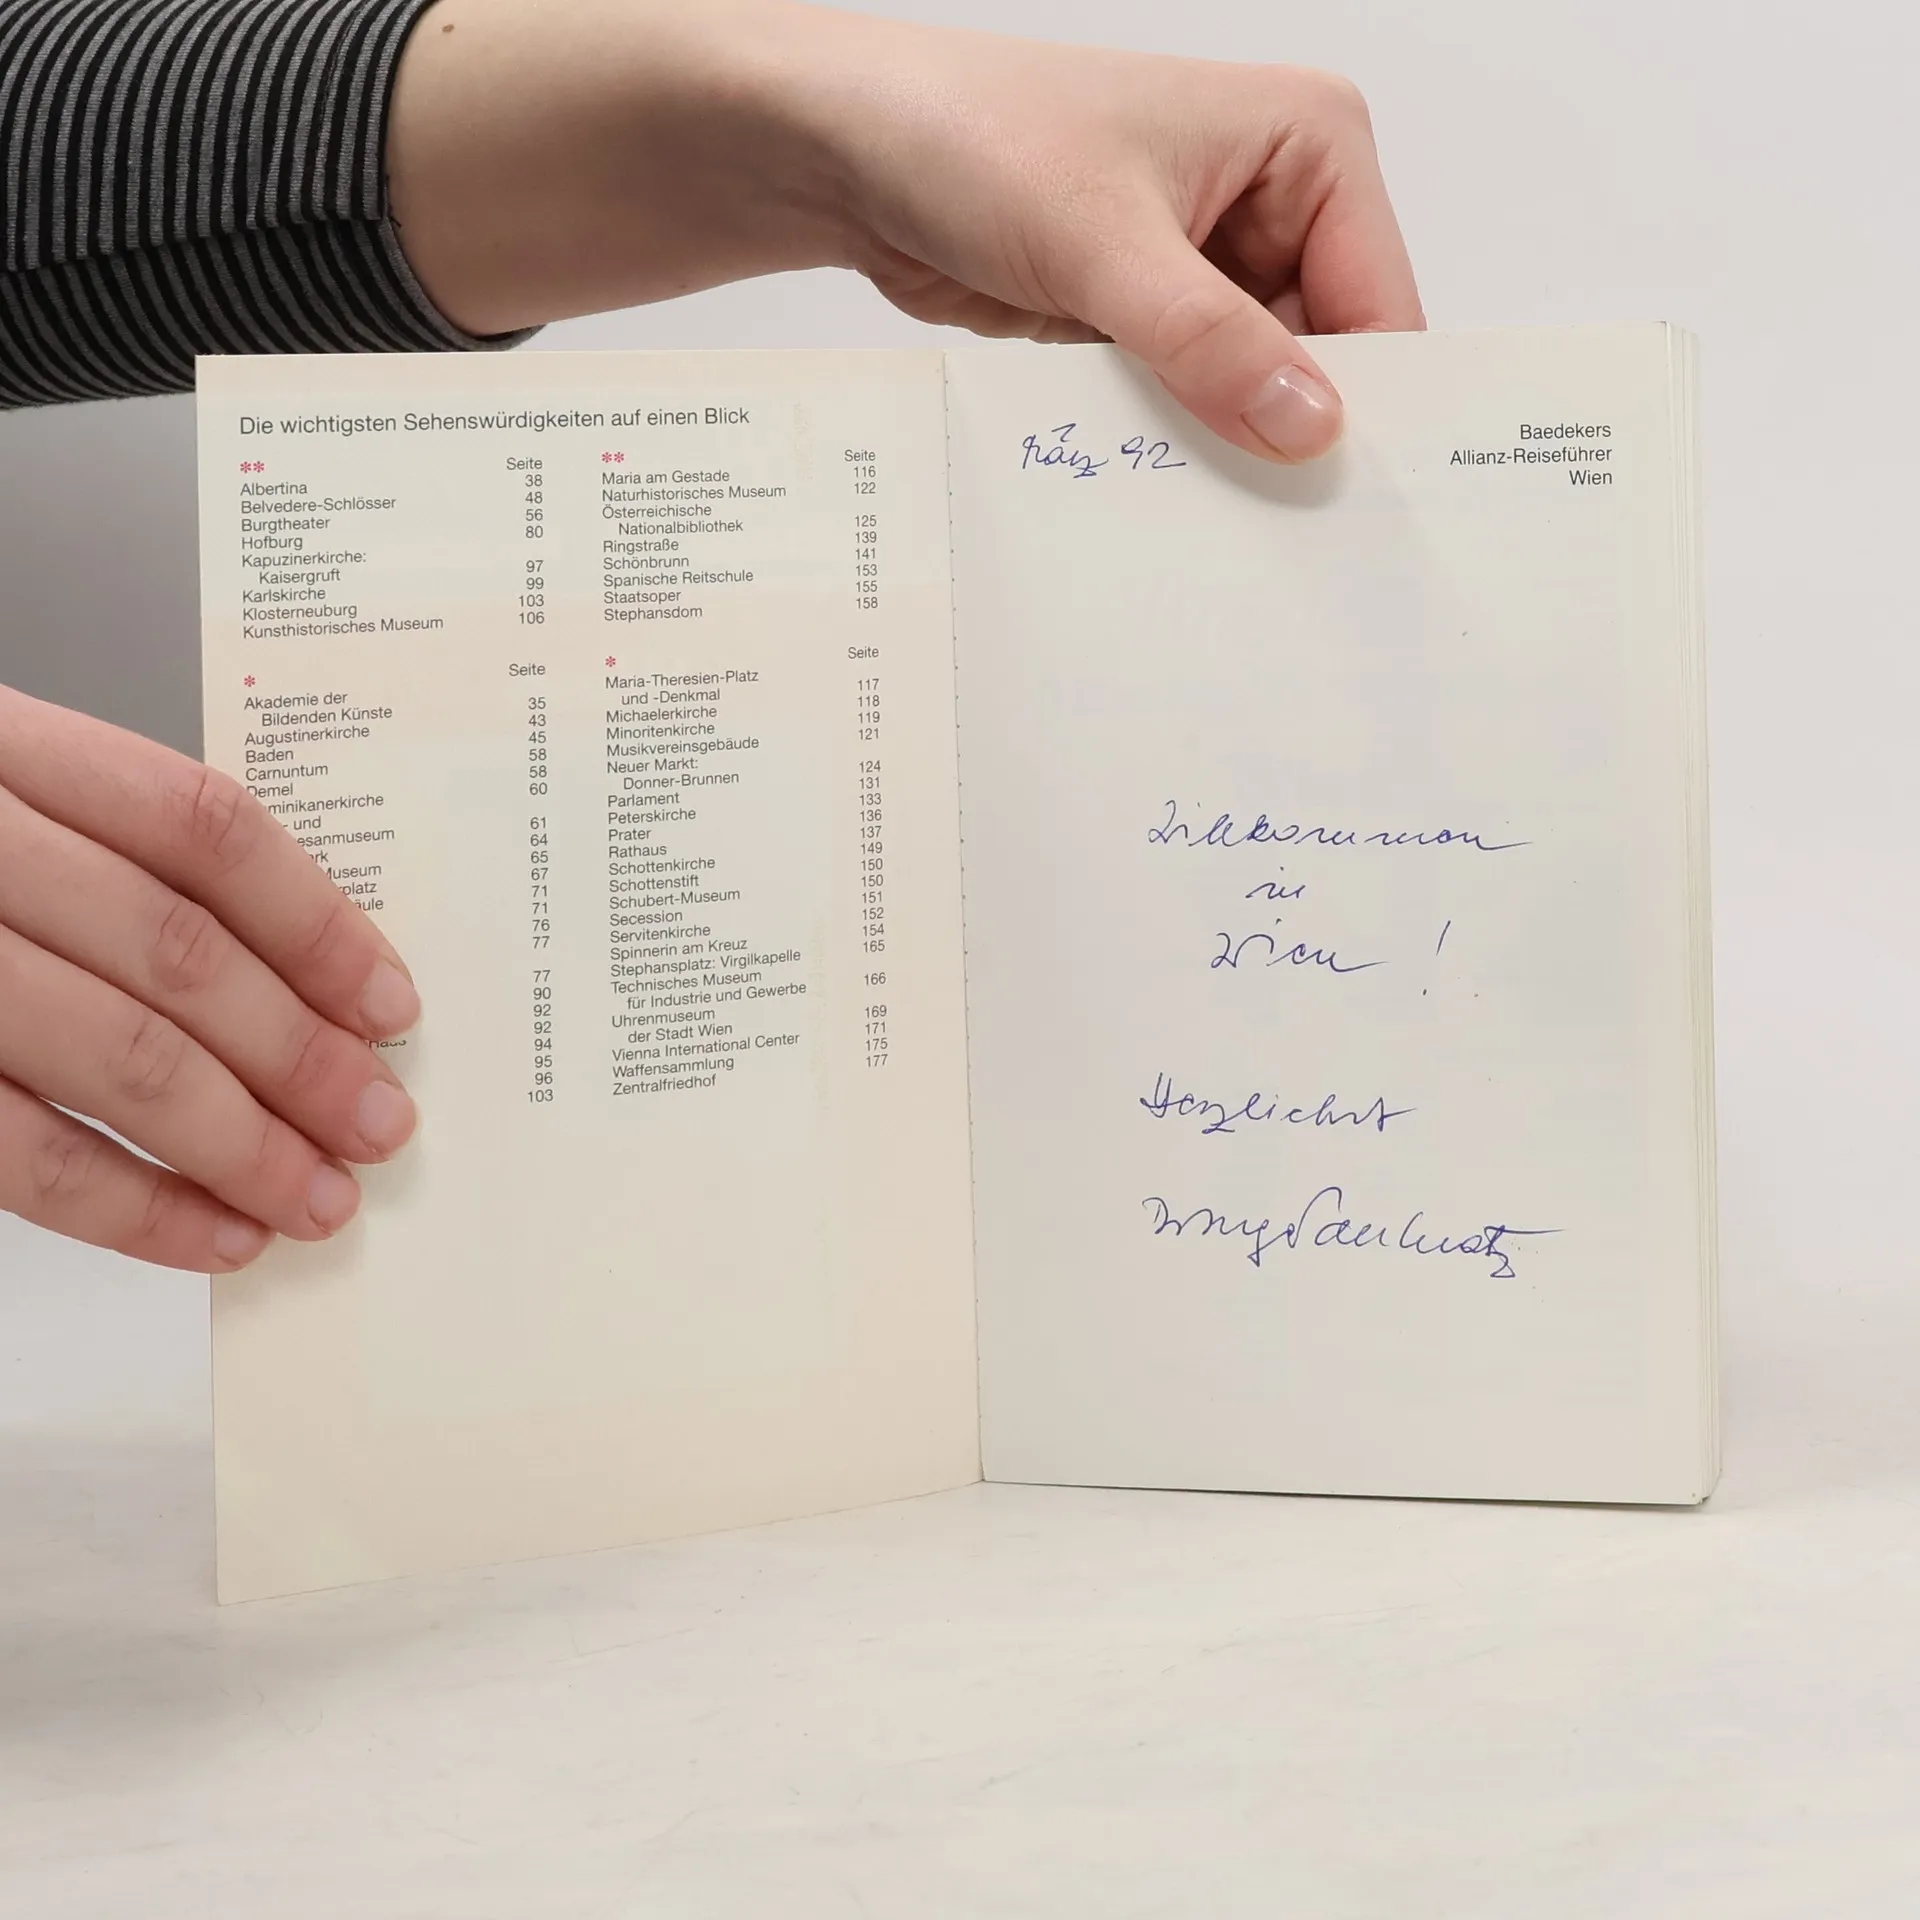 Die wichtigsten Sehenswürdigkeiten auf einen Blick
** Seite
Albertina 38
Belvedere-Schlösser 48
Burgtheater 56
Hofburg 80
Kapuzinerkirche:
Kaisergruft 97
Karlskirche 99
Klosterneuburg 103
Kunsthistorisches Museum 106
** Seite
Maria am Gestade 116
Naturhistorisches Museum 122
Österreichische
Nationalbibliothek 125
Ringstraße 139
Schönbrunn 141
Spanische Reitschule 153
Staatsoper 155
Stephansdom 158
* Seite
Akademie der
Bildenden Künste 35
Augustinerkirche 43
Baden 45
Carnuntum 58
Demel 58
minikanerkirche 60
- und
esanmuseum 61
rk 64
Museum 65
platz 67
äule 71
71
76
77
77
90
92
92
Haus 94
95
96
103
* Seite
Maria-Theresien-Platz
und -Denkmal 117
Michaelerkirche 118
Minoritenkirche 119
Musikvereinsgebäude 121
Neuer Markt:
Donner-Brunnen 124
Parlament 131
Peterskirche 133
Prater 136
Rathaus 137
Schottenkirche 149
Schottenstift 150
Schubert-Museum 150
Secession 151
Servitenkirche 152
Spinnerin am Kreuz 154
Stephansplatz: Virgilkapelle 165
Technisches Museum
für Industrie und Gewerbe 166
Uhrenmuseum
der Stadt Wien 169
Vienna International Center 171
Waffensammlung 175
Zentralfriedhof 177
März 92
Baedekers
Allianz-Reiseführer
Wien
Willkommen
in
Wien !
Herzlichst